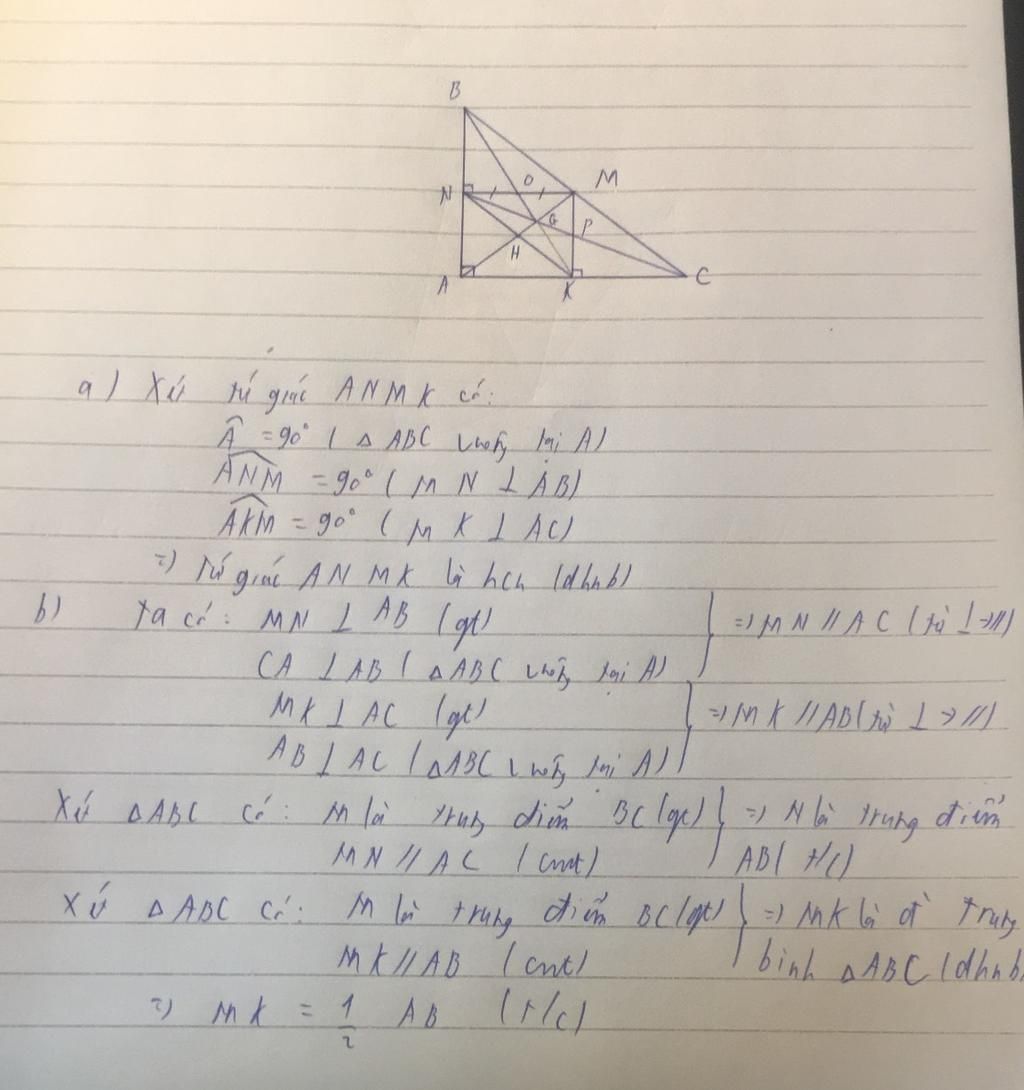 B
N
O
M
G
P
H
A
K
C
a) Xét tứ giác ANMK có:
Â = 90° ( △ ABC vuông tại A)
ANM̂ = 90° ( MN ⊥ AB)
AKM̂ = 90° ( MK ⊥ AC)
=) Tứ giác ANMK là hcn (dhnb)
b) Ta có: MN ⊥ AB (gt) } =) MN // AC ( từ ⊥ → //)
CA ⊥ AB ( △ ABC vuông tại A)
MK ⊥ AC (gt) } =) MK // AB( từ ⊥ → //)
AB ⊥ AC ( △ABC vuông tại A)
Xét △ABC có: M là trung điểm BC (gt) } =) N là trung điểm
MN // AC (cmt) AB( t/c)
Xét △ABC có: M là trung điểm BC (gt) } =) MK là đ̀ trung
MK // AB (cmt) bình △ABC (dhnb)
=) MK = 1/2 AB (t/c)